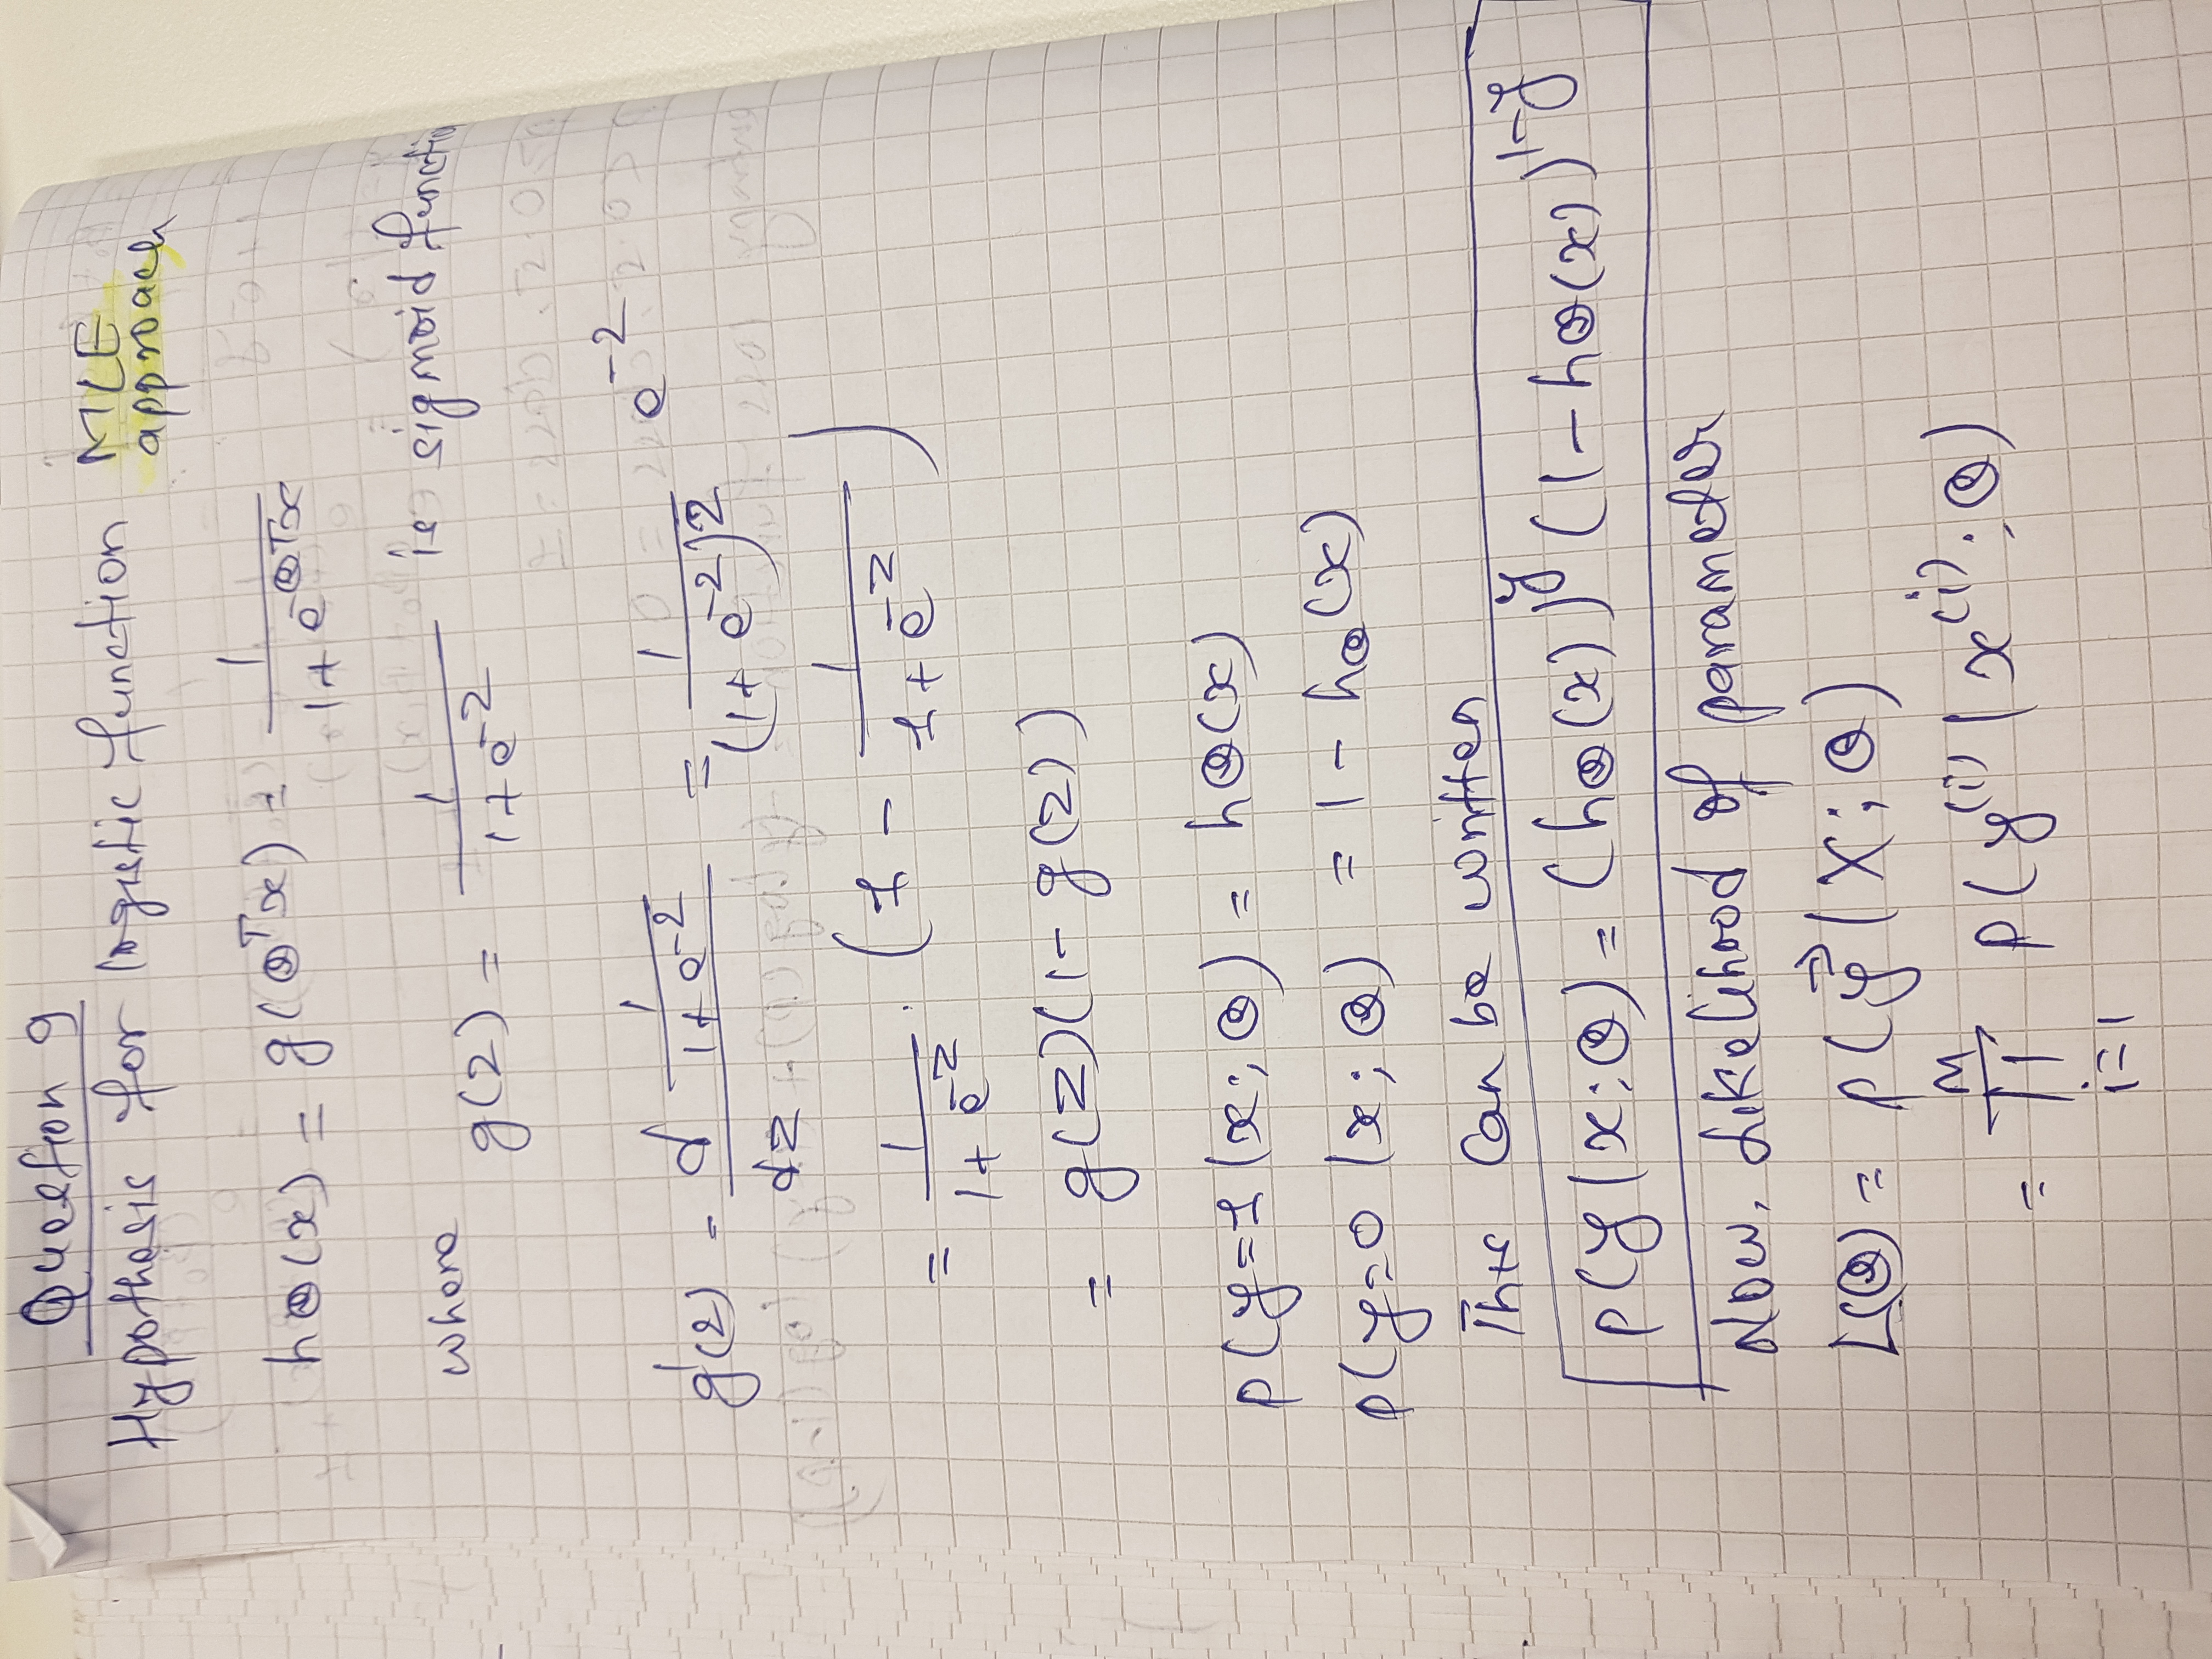 Question 9
Hypothesis for logistic function MLE approach
hθ(x) = g(θᵀx) = 1 / (1 + e^(-θᵀx))
where g(z) = 1 / (1 + e^(-z)) is sigmoid functio
g'(z) = d (1 / (1 + e^(-z))) / dz = 1 / (1 + e^(-z))² e^(-z)
= 1 / (1 + e^(-z)) · (1 - 1 / (1 + e^(-z)))
= g(z)(1 - g(z))
p(y=1 | x; θ) = hθ(x)
p(y=0 | x; θ) = 1 - hθ(x)
This can be written
p(y | x; θ) = (hθ(x))^y (1 - hθ(x))^(1-y)
Now, Likelihood of parameter
L(θ) = p(y⃗ | X; θ)
= ∏_{i=1}^{M} p(y^(i) | x^(i); θ)